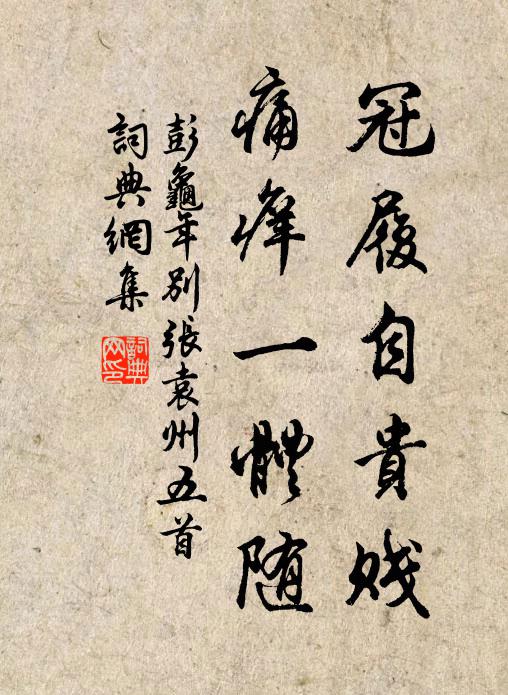 冠履自貴賤
痛癢一體随
彭龜年别張袁州五首
詞典網集
詞典网印